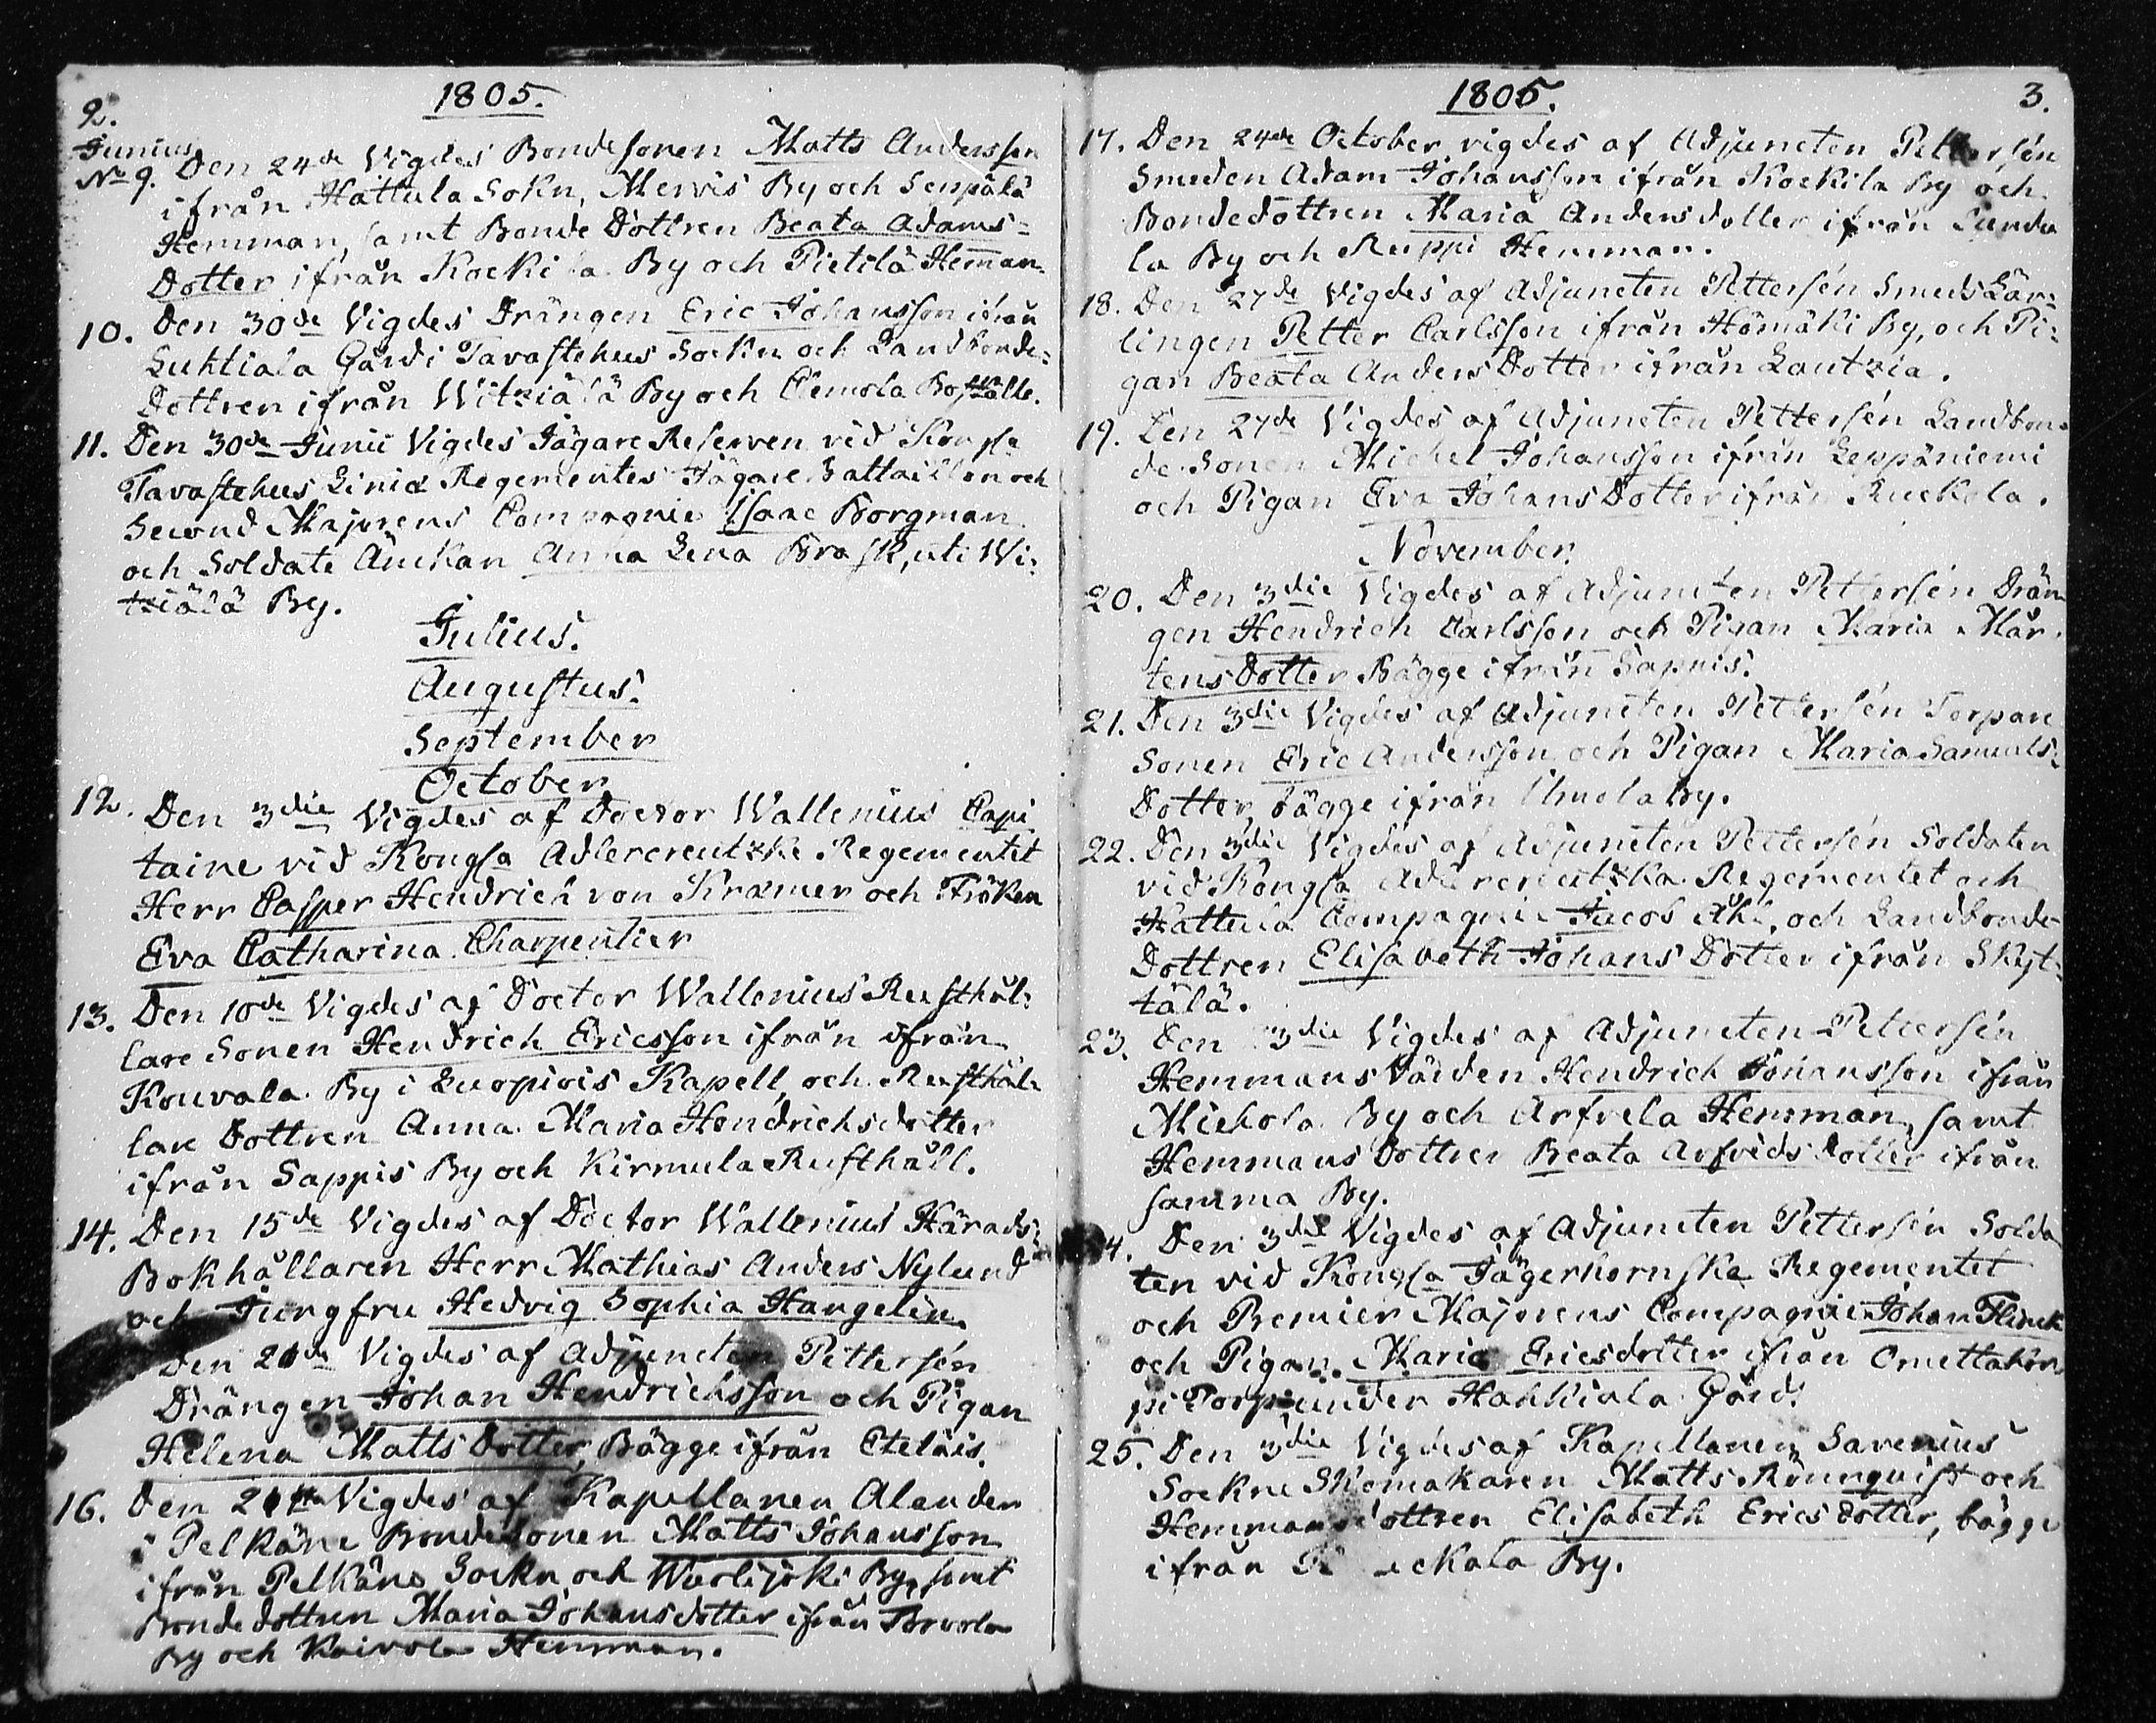 2.
1805.
Junius
No 9. Den 24de Vigdes Bondesonen Matts Andersson
ifrån Hattula Sokn, Mervis By och Seppälä
Hemman, samt Bonde Dottren Beata Adams=
Dotter ifrån Kockila By och Pietilä Hemman.
10. Den 30de Vigdes Drängen Eric Johansson ifrån
Luhtiala Gård i Tavastehus Sockn och Landbonde=
Dottren ifrån Witziälä By och Clemola Boställe.
11. Den 30de Junii Vigdes Jägare Reserven vid Kongla
Tavastehus Linie Regementes Jägare Battaillon och
Second Majorens Compagnie Isaac Borgman
och Soldate Änckan Anna Lena Brask, uti Wi=
tziälä By.
Julius.
Augustus.
September
October
12. Den 3die Vigdes af Doctor Wallenius Capi
taine vid Kongla Adlercreutzke Regementet
Herr Casper Hendrich von Kræmer och Fröken
Eva Catharina Charpentier
13. Den 10de Vigdes af Doctor Wallenius Rusthål=
lare Sonen Hendrich Ericsson ifrån ifrån
Kouvala By i Luopiois Kapell, och Rusthål=
lare Dottren Anna Maria Hendrichsdotter
ifrån Sappis By och Kirmula Rusthåll.
14. Den 15de Vigdes af Doctor Wallenius Härads=
Bokhållaren Herr Mathias Anders Nylund
och Jungfru Hedvig Sophia Hangelin.
Den 20de Vigdes af Adjuncten Pettersén
Drängen Johan Hendrichsson och Pigan
Helena Matts Dotter, Bägge ifrån Eteläis.
16. Den Vigdes af Kapellanen Alander
i Pelkäne Bondesonen Matts Johansson
ifrån Pelkäne Sockn och By, samt
Bondedottren Maria Johansdotter ifrån
By och Hemman.
1805.
3.
17. Den 24de October vigdes af Adjuncten Pettersén
Smeden Adam Johansson ifrån Kockila By och
Bondedottren Maria Andersdotter ifrån
la By och Ruppi Hemman.
18. Den 27de Vigdes af Adjuncten Pettersén Smeds Lär=
lingen Petter Carlsson ifrån Hömäki By, och Pi=
gan Beata Anders Dotter ifrån Lautzia.
19. Den 27de Vigdes af Adjuncten Pettersén Landbon=
de Sonen Michel Johansson ifrån Leppäniemi
och Pigan Eva Johans Dotter ifrån Ruckola.
November.
20. Den 3die Vigdes af Adjuncten Pettersén Drän
gen Hendrich Carlsson och Pigan Maria Mår=
tens Dotter Bägge ifrån Sappis.
21. Den 3die Vigdes af Adjuncten Pettersén Torpare
Sonen Eric Andersson och Pigan Maria Samuels=
Dotter, bägge ifrån By.
22. Den 3die Vigdes af Adjuncten Pettersén Soldaten
vid Kongla Adlercreutzka Regementet och
Hattula Compagnie Jacob och Landbonde
Dottren Elisabeth Johans Dotter ifrån Skyt=
tälä.
23. Den 3die Vigdes af Adjuncten Pettersén
Hemmans Vården Hendrich Johansson ifrån
Mickola By och Arfvela Hemman, samt
Hemmans Dottren Beata Arfvids dotter ifrån
samma By.
4. Den 3die Vigdes af Adjuncten Pettersén Solda
ten vid Kongla Jägerhornska Regementet
och Premier Majorens Compagnie Johan Flinck
och Pigan Maria Ericsdotter ifrån
pi Torp under Hahkiala Gård.
25. Den 3die Vigdes af Kapellanen Savenius
Sockne Skomakaren Matts Rönnqvist och
Hemmansdottren Elisabeth Ericsdotter, bägge
ifrån By.